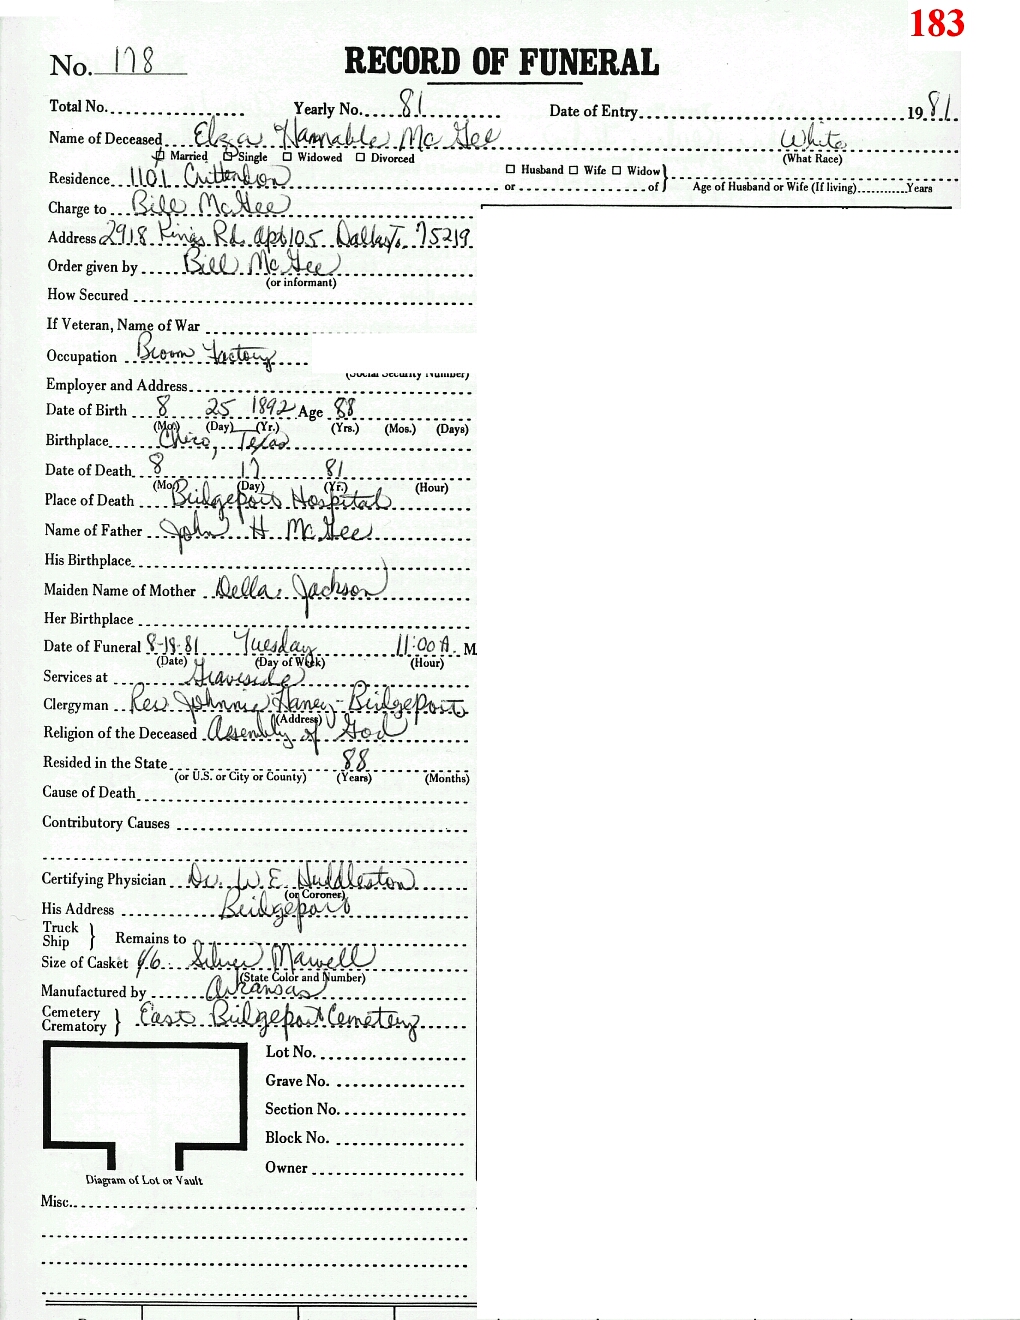 183
No. 178 RECORD OF FUNERAL
Total No. Yearly No. 81 Date of Entry 1981
Name of Deceased Elza Hannable McGee White
Married Single Widowed Divorced (What Race)
Residence 1101 Crittendon Husband Wife Widow
or of Age of Husband or Wife (If living) Years
Charge to Bill McGee
Address 2918 Kings Rd. Apt 105 Dallas 75219
Order given by Bill McGee
(or informant)
How Secured
If Veteran, Name of War
Occupation Broom Factory
(Social Security Number)
Employer and Address
Date of Birth 8 25 1892 Age 88
(Mo.) (Day) (Yr.) (Yrs.) (Mos.) (Days)
Birthplace Chico, Texas
Date of Death 8 17 81
(Mo.) (Day) (Yr.) (Hour)
Place of Death Bridgeport Hospital
Name of Father John H McGee
His Birthplace
Maiden Name of Mother Della Jackson
Her Birthplace
Date of Funeral 8-18-81 Tuesday 11:00 A. M
(Date) (Day of Week) (Hour)
Services at Graveside
Clergyman Rev Johnnie Haney - Bridgeport
(Address)
Religion of the Deceased Assembly of God
Resided in the State 88
(or U.S. or City or County) (Years) (Months)
Cause of Death
Contributory Causes
Certifying Physician Dr. W. E. Huddleston
(or Coroner)
His Address Bridgeport
Truck
Ship } Remains to
Size of Casket 6/6 Silver Maxwell
(State Color and Number)
Manufactured by Arkansas
Cemetery
Crematory } East Bridgeport Cemetery
Lot No.
Grave No.
Section No.
Block No.
Owner
Diagram of Lot or Vault
Misc.